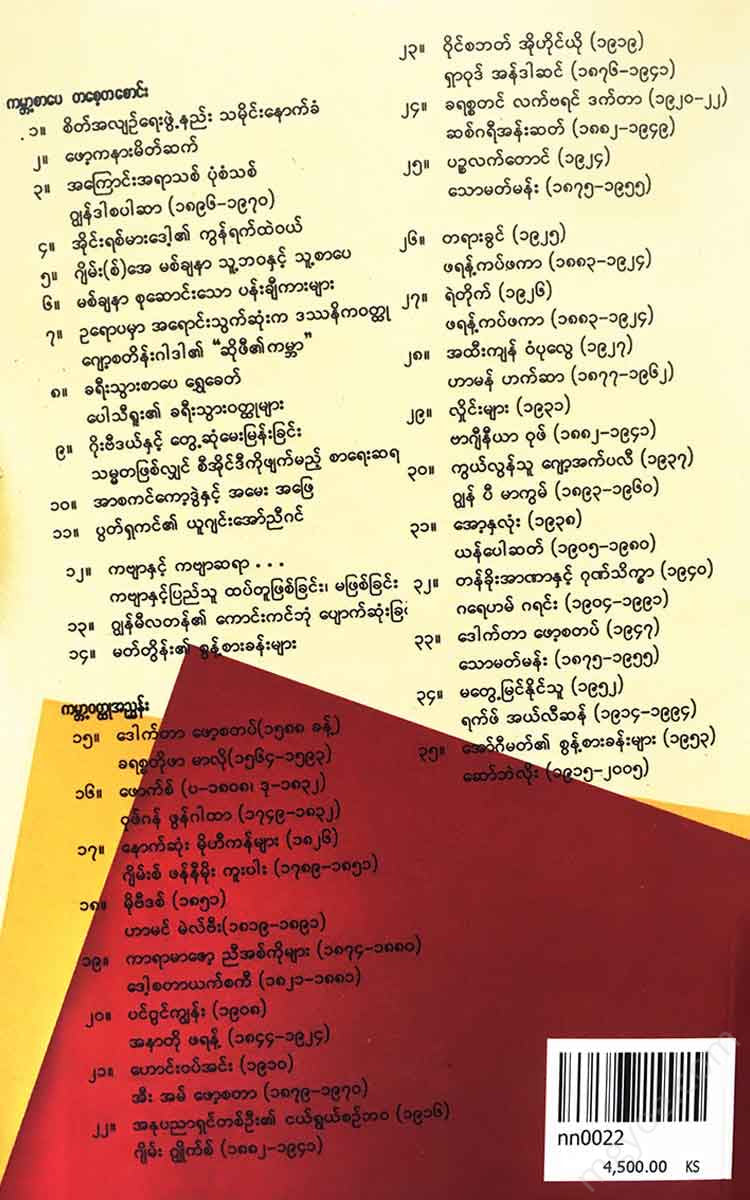 ကမ္ဘာ့စာပေ တစေ့တစောင်း
၁။ စိတ်အလျဉ်ရေးဖွဲ့နည်း သမိုင်းနောက်ခံ
၂။ ဖော့ကနားမိတ်ဆက်
၃။ အကြောင်းအရာသစ် ပုံစံသစ်
ဂျွန်ဒါစပါဆာ (၁၈၉၆-၁၉၇၀)
၄။ အိုင်းရစ်မားဒေါ့၏ ကွန်ရက်ထဲဝယ်
၅။ ဂျိမ်း(စ်)အေ မစ်ချနာ သူ့ဘဝနှင့် သူ့စာပေ
၆။ မစ်ချနာ စုဆောင်းသော ပန်းချီကားများ
၇။ ဥရောပမှာ အရောင်းသွက်ဆုံးက ဒဿနိကဝတ္ထု
ဂျော့စတိန်းဂါဒါ၏ “ဆိုဖီ၏ကမ္ဘာ”
၈။ ခရီးသွားစာပေ ရွှေခေတ်
ပေါသီရူး၏ ခရီးသွားဝတ္ထုများ
၉။ ဂိုးဗီဒယ်နှင့် တွေ့ဆုံမေးမြန်းခြင်း
သမ္မတဖြစ်လျှင် စီအိုင်ဒီကိုဖျက်မည့် စာရေးဆရ
၁၀။ အာစကင်ကော့ဒွဲနှင့် အမေး အဖြေ
၁၁။ ပွတ်ရှကင်၏ ယူဂျင်းအော်ညီဂင်
၁၂။ ကဗျာနှင့် ကဗျာဆရာ . . .
ကဗျာနှင့်ပြည်သူ ထပ်တူဖြစ်ခြင်း၊ မဖြစ်ခြင်း
၁၃။ ဂျွန်မီလတန်၏ ကောင်းကင်ဘုံ ပျောက်ဆုံးခြင်
၁၄။ မတ်တွိန်း၏ စွန့်စားခန်းများ
ကမ္ဘာ့ဝတ္ထုအညွှန်း
၁၅။ ဒေါက်တာ ဖော့စတပ်(၁၅၈၈ ခန့်)
ခရစ္စတိုဖာ မာလို(၁၅၆၄-၁၅၉၃)
၁၆။ ဖောက်စ် (ပ-၁၈၀၈၊ ဒု-၁၈၃၂)
ဝုဖ်ဂန် ဖွန်ဂါထာ (၁၇၄၉-၁၈၃၂)
၁၇။ နောက်ဆုံး မိုဟီကန်များ (၁၈၂၆)
ဂျိမ်းစ် ဖန်နီမိုး ကူးပါး (၁၇၈၉-၁၈၅၁)
၁၈။ မိုဗီဒစ် (၁၈၅၁)
ဟာမင် မဲလ်ဗီး(၁၈၁၉-၁၈၉၁)
၁၉။ ကာရာမာဇော့ ညီအစ်ကိုများ (၁၈၇၄-၁၈၈၀)
ဒေါ့စတာယက်စကီ (၁၈၂၁-၁၈၈၁)
၂၀။ ပင်ဂွင်ကျွန်း (၁၉၀၈)
အနာတို ဖရန့် (၁၈၄၄-၁၉၂၄)
၂၁။ ဟောင်းဝပ်အင်း (၁၉၁၀)
အီး အမ် ဖော့စတာ (၁၈၇၉-၁၉၇၀)
၂၂။ အနုပညာရှင်တစ်ဦး၏ ငယ်ရွယ်စဉ်ဘဝ (၁၉၁၆)
ဂျိမ်း ဂျွိုက်စ် (၁၈၈၂-၁၉၄၁)
၂၃။ ဝိုင်စဘတ် အိုဟိုင်ယို (၁၉၁၉)
ရှာဝုဒ် အန်ဒါဆင် (၁၈၇၆-၁၉၄၁)
၂၄။ ခရစ္စတင် လက်ဗရင် ဒက်တာ (၁၉၂၀-၂၂)
ဆစ်ဂရီအန်းဆတ် (၁၈၈၂-၁၉၄၉)
၂၅။ ပဉ္စလက်တောင် (၁၉၂၄)
သောမတ်မန်း (၁၈၇၅-၁၉၅၅)
၂၆။ တရားခွင် (၁၉၂၅)
ဖရန့်ကပ်ဖကာ (၁၈၈၃-၁၉၂၄)
၂၇။ ရဲတိုက် (၁၉၂၆)
ဖရန့်ကပ်ဖကာ (၁၈၈၃-၁၉၂၄)
၂၈။ အထီးကျန် ဝံပုလွေ (၁၉၂၇)
ဟာမန် ဟက်ဆာ (၁၈၇၇-၁၉၆၂)
၂၉။ လှိုင်းများ (၁၉၃၁)
ဗာဂျီနီယာ ဝုဖ် (၁၈၈၂-၁၉၄၁)
၃၀။ ကွယ်လွန်သူ ဂျော့အက်ပလီ (၁၉၃၇)
ဂျွန် ပီ မာကွမ် (၁၈၉၃-၁၉၆၀)
၃၁။ အော့နှလုံး (၁၉၃၈)
ယန်ပေါဆတ် (၁၉၀၅-၁၉၈၀)
၃၂။ တန်ခိုးအာဏာနှင့် ဂုဏ်သိက္ခာ (၁၉၄၀)
ဂရေဟမ် ဂရင်း (၁၉၀၄-၁၉၉၁)
၃၃။ ဒေါက်တာ ဖော့စတပ် (၁၉၄၇)
သောမတ်မန်း (၁၈၇၅-၁၉၅၅)
၃၄။ မတွေ့မြင်နိုင်သူ (၁၉၅၂)
ရက်ဖ် အယ်လီဆန် (၁၉၁၄-၁၉၉၄)
၃၅။ အော်ဂီမတ်၏ စွန့်စားခန်းများ (၁၉၅၃)
ဆော်ဘဲလိုး (၁၉၁၅-၂၀၀၅)
nn0022
4,500.00 KS